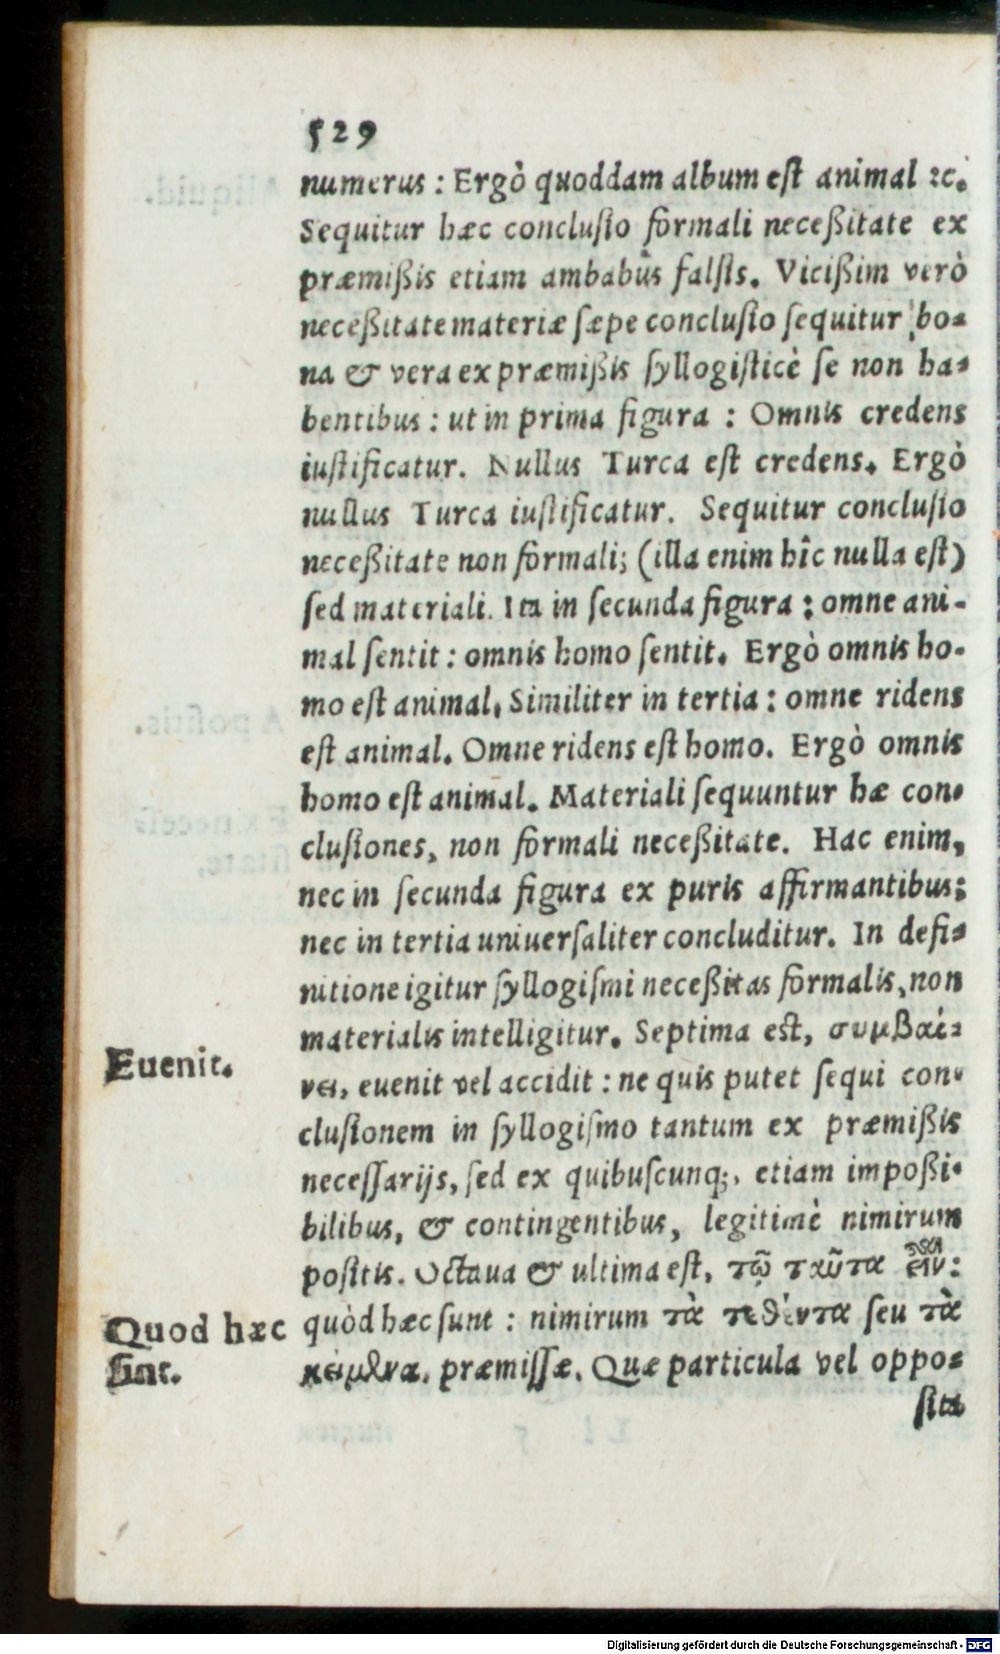 529
numerus : Ergò quoddam album est animal ꝛc.
Sequitur hæc conclusio formali neceßitate ex
præmißis etiam ambabus falsis. Vicißim verò
neceßitate materiæ sæpe conclusio sequitur bo-
na & vera ex præmißis syllogisticè se non ha-
bentibus : ut in prima figura : Omnis credens
iustificatur. Nullus Turca est credens. Ergò
nullus Turca iustificatur. Sequitur conclusio
neceßitate non formali; (illa enim hîc nulla est)
sed materiali. Ita in secunda figura : omne ani-
mal sentit : omnis homo sentit. Ergò omnis ho-
mo est animal. Similiter in tertia : omne ridens
est animal. Omne ridens est homo. Ergò omnis
homo est animal. Materiali sequuntur hæ con-
clusiones, non formali neceßitate. Hac enim,
nec in secunda figura ex puris affirmantibus;
nec in tertia uniuersaliter concluditur. In defi-
nitione igitur syllogismi neceßitas formalis, non
materialis intelligitur. Septima est, συμβαί-
Euenit.
νει, euenit vel accidit : ne quis putet sequi con-
clusionem in syllogismo tantum ex præmißis
necessarijs, sed ex quibuscunq;, etiam impoßi-
bilibus, & contingentibus, legitimè nimirum
positis. Octaua & ultima est, τῷ ταῦτα εἶναι:
Quod hæc
sint.
quòd hæc sunt : nimirum τὰ τεθέντα seu τὰ
κείμενα, præmissæ. Quæ particula vel oppo-
sita
Digitalisierung gefördert durch die Deutsche Forschungsgemeinschaft - DFG